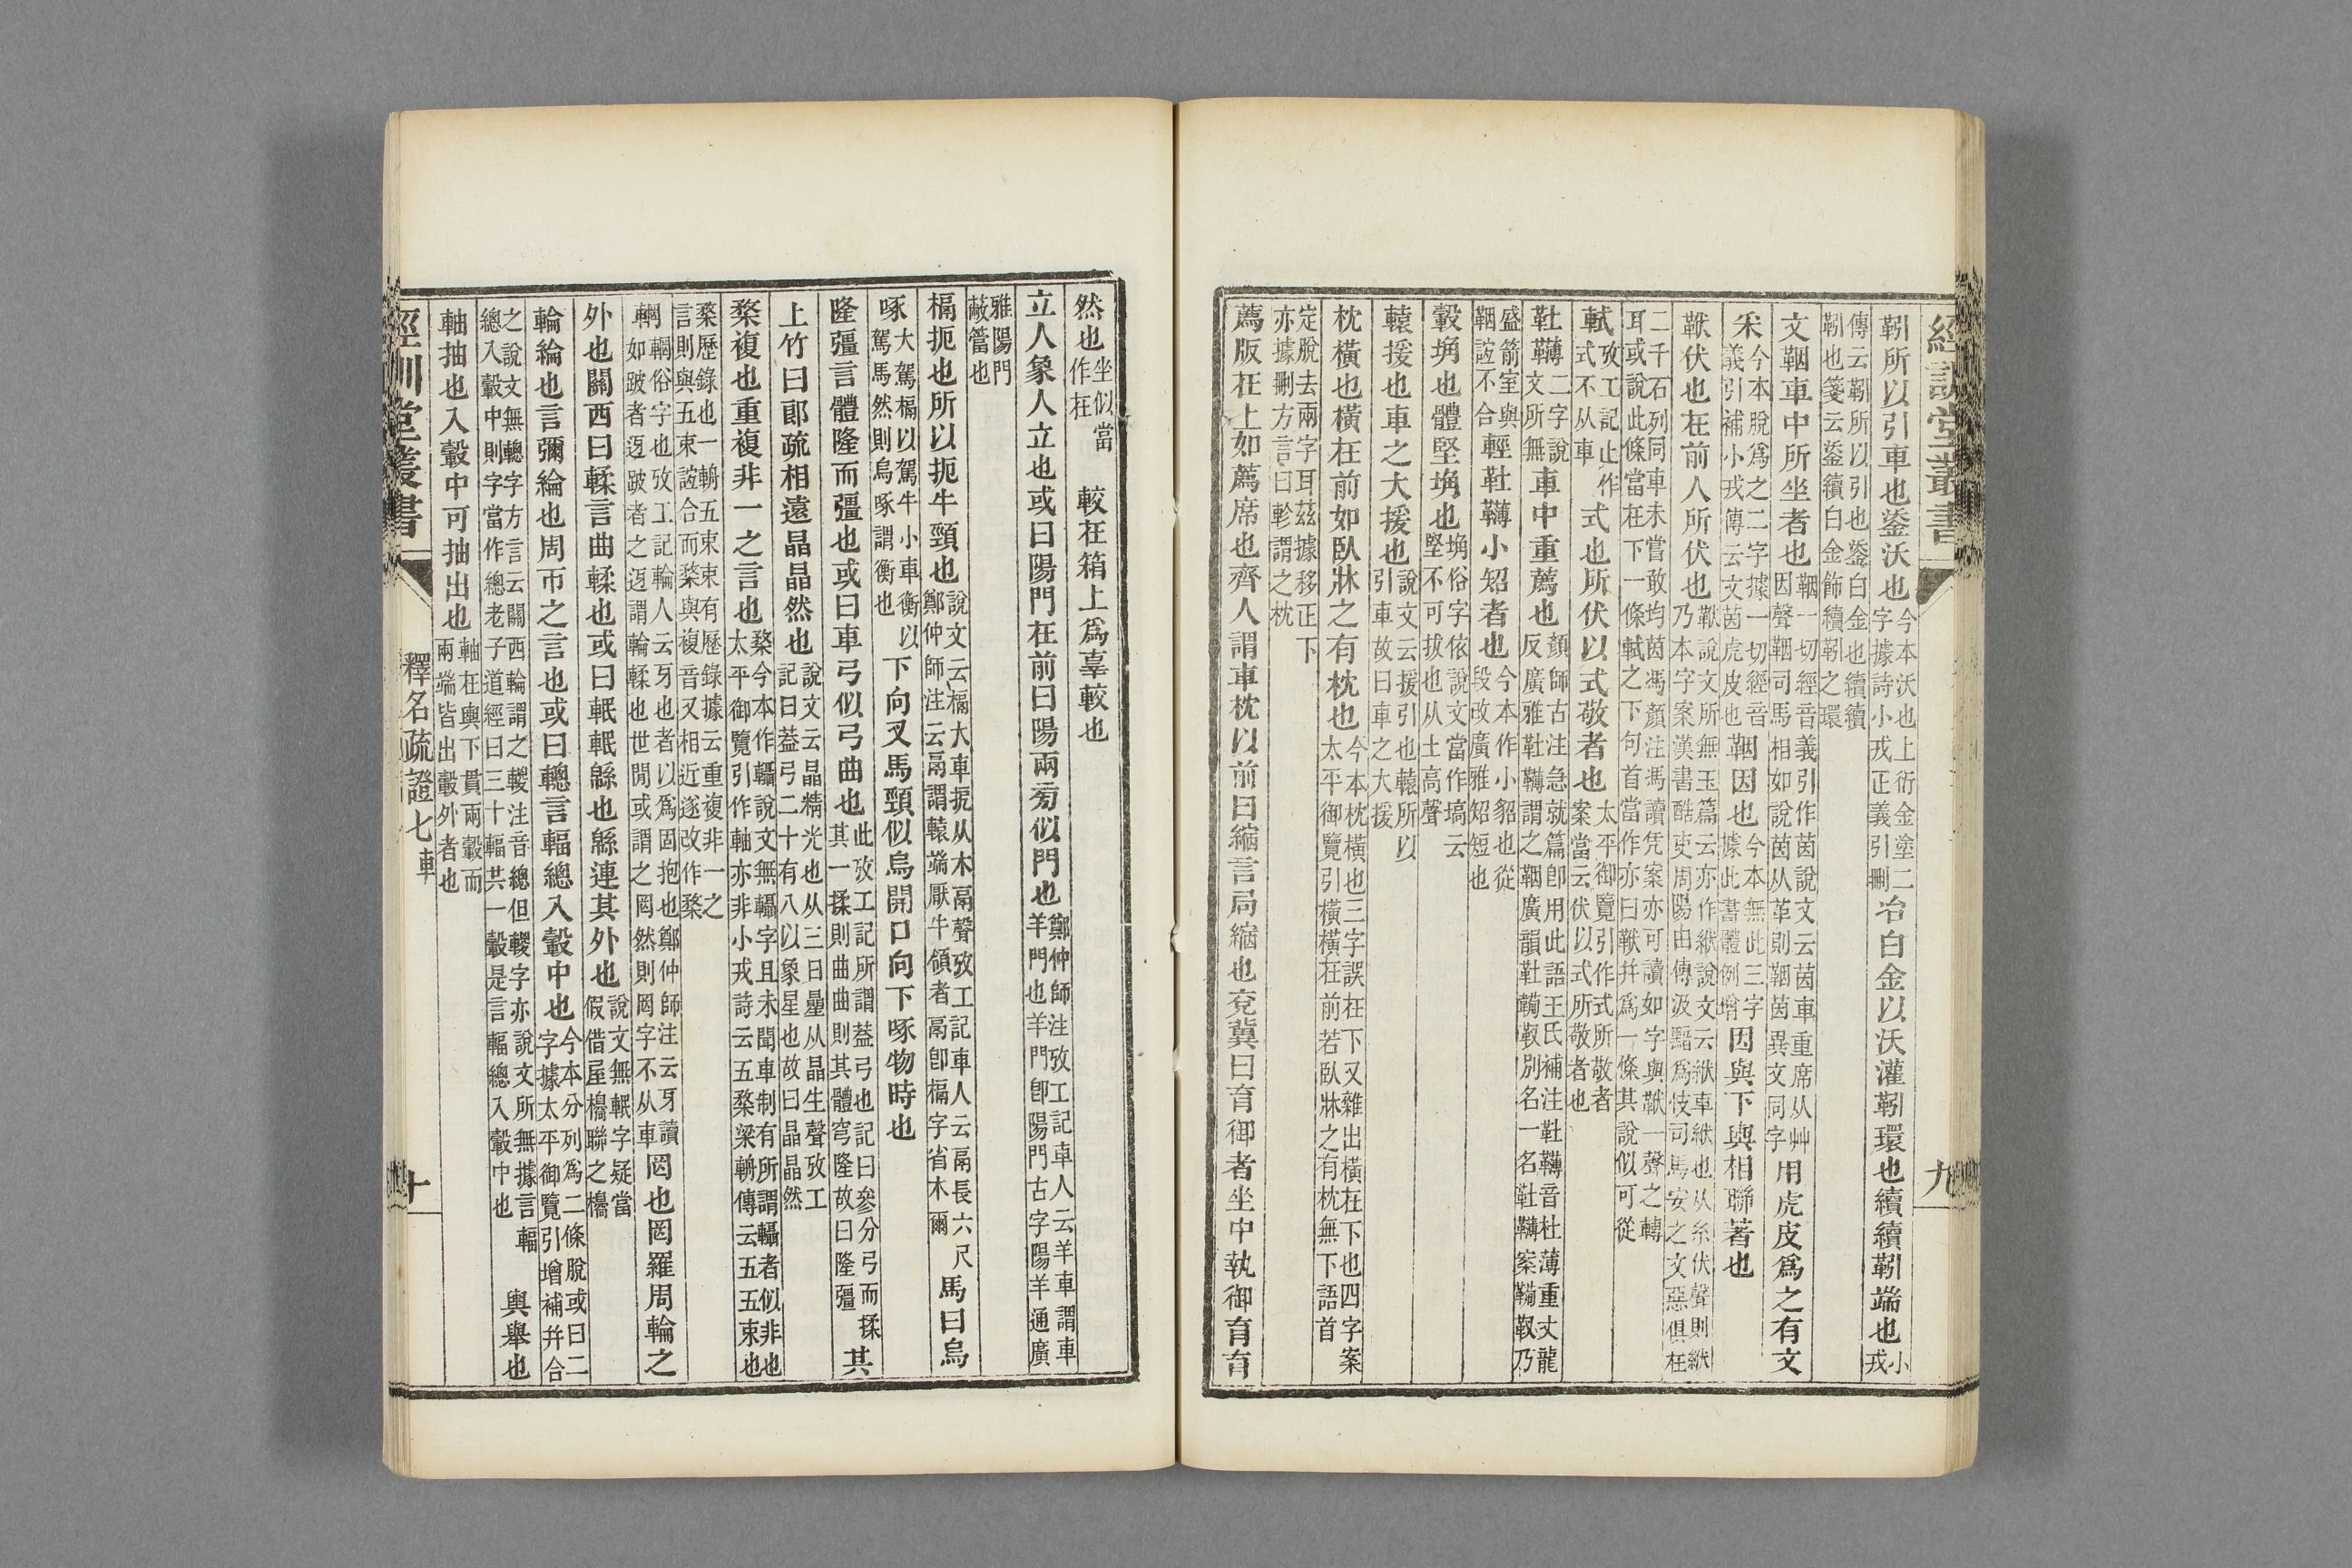 經訓堂叢書
九
靷所以引車也鋈沃也今本沃也上衍金塗二字據詩小戎正義引刪冶白金以沃灌靷環也續續靷端也小戎
傳云靷所以引也鋈白金也續續靷也箋云鋈續白金飾續靷之環
文鞇車中所坐者也鞇一切經音義引作茵說文云茵車重席从艸因聲鞇司馬相如說茵从革則鞇茵異文同字用虎皮爲之有文
采今本脫爲之二字據一切經音義引補小戎傳云文茵虎皮也鞇因也今本無此三字據此書體例增因與下輿相聯著也
靯伏也在前人所伏也
二千石列同車未嘗敢均茵馮顏注馮讀凭案亦可讀如字與靯一聲之轉耳或說此條當在下一條軾之下句首當作亦曰靯幷爲一條其說似可從
軾攷工記止作式不从車式也所伏以式敬者也太平御覽引作式所敬者案當云伏以式所敬者也
靯䪙二字說文所無車中重薦也顏師古注急就篇卽用此語王氏補注靯䪙音杜薄重丈龍反廣雅靯䪙謂之鞇廣韻靯䪙靫別名一名靯䪙案䪙靫乃
盛箭室與鞇誼不合輕靯䪙小㲈者也今本作小貂也從段改廣雅㲈短也
轂埆也體堅埆也埆俗字依說文當作塙云堅不可拔也从土高聲
轅援也車之大援也說文云援引也轅所以引車故曰車之大援
枕橫也橫在前如臥牀之有枕也今本枕橫也三字誤在下又雜出橫在下也四字案太平御覽引橫橫在前若臥牀之有枕無下語首
定脫去兩字耳茲據移正下亦據刪方言曰軫謂之枕
薦版在上如薦席也齊人謂車枕以前曰縮言局縮也兗冀曰育御者坐中執御育育
然也坐似當作在較在箱上爲辜較也
立人象人立也或曰陽門在前曰陽兩旁似門也鄭仲師注攷工記車人云羊車謂車羊門也羊門卽陽門古字陽羊通廣
雅陽門蔽簹也
槅扼也所以扼牛頸也說文云槅大車扼从木鬲聲攷工記車人云鬲長六尺鄭仲師注云鬲謂轅端厭牛領者鬲卽槅字省木爾馬曰烏
啄大駕槅以駕牛小車衡以駕馬然則烏啄謂衡也下向叉馬頸似烏開口向下啄物時也
隆彊言體隆而彊也或曰車弓似弓曲也此攷工記所謂葢弓也記曰參分弓而揉其一揉則曲曲則其體穹隆故曰隆彊其
上竹曰郎疏相遠晶晶然也說文云晶精光也从三日曐从晶生聲攷工記曰葢弓二十有八以象星也故曰晶晶然
楘複也重複非一之言也楘今本作轗說文無轗字且未聞車制有所謂轗者似非也太平御覽引作軸亦非小戎詩云五楘梁輈傳云五五束也
楘歷錄也一輈五束束有歷錄據云重複非一之言則與五束誼合而楘與複音又相近遂改作楘
輞輞俗字也攷工記輪人云牙也者以爲固抱也鄭仲師注云牙讀如跛者迓跛者之迓謂輪輮也世閒或謂之罔然則罔字不从車罔也罔羅周輪之
外也關西曰輮言曲輮也或曰䡊䡊緜也緜連其外也說文無䡊字疑當假借屋櫋聯之櫋
輪綸也言彌綸也周帀之言也或曰轗言輻總入轂中也今本分列爲二條脫或曰二字據太平御覽引增補幷合
之說文無轗字方言云關西輪謂之轗注音總但轗字亦說文所無據言輻總入轂中則字當作總老子道經曰三十輻共一轂是言輻總入轂中也輿舉也
軸抽也入轂中可抽出也軸在輿下貫兩轂而兩端皆出轂外者也
經訓堂叢書
釋名疏證七車
十